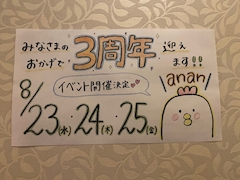 みなさまの
おかげで
3周年
迎え
ます!!
イベント開催決定
anan
8/23(水)・24(木)・25(金)